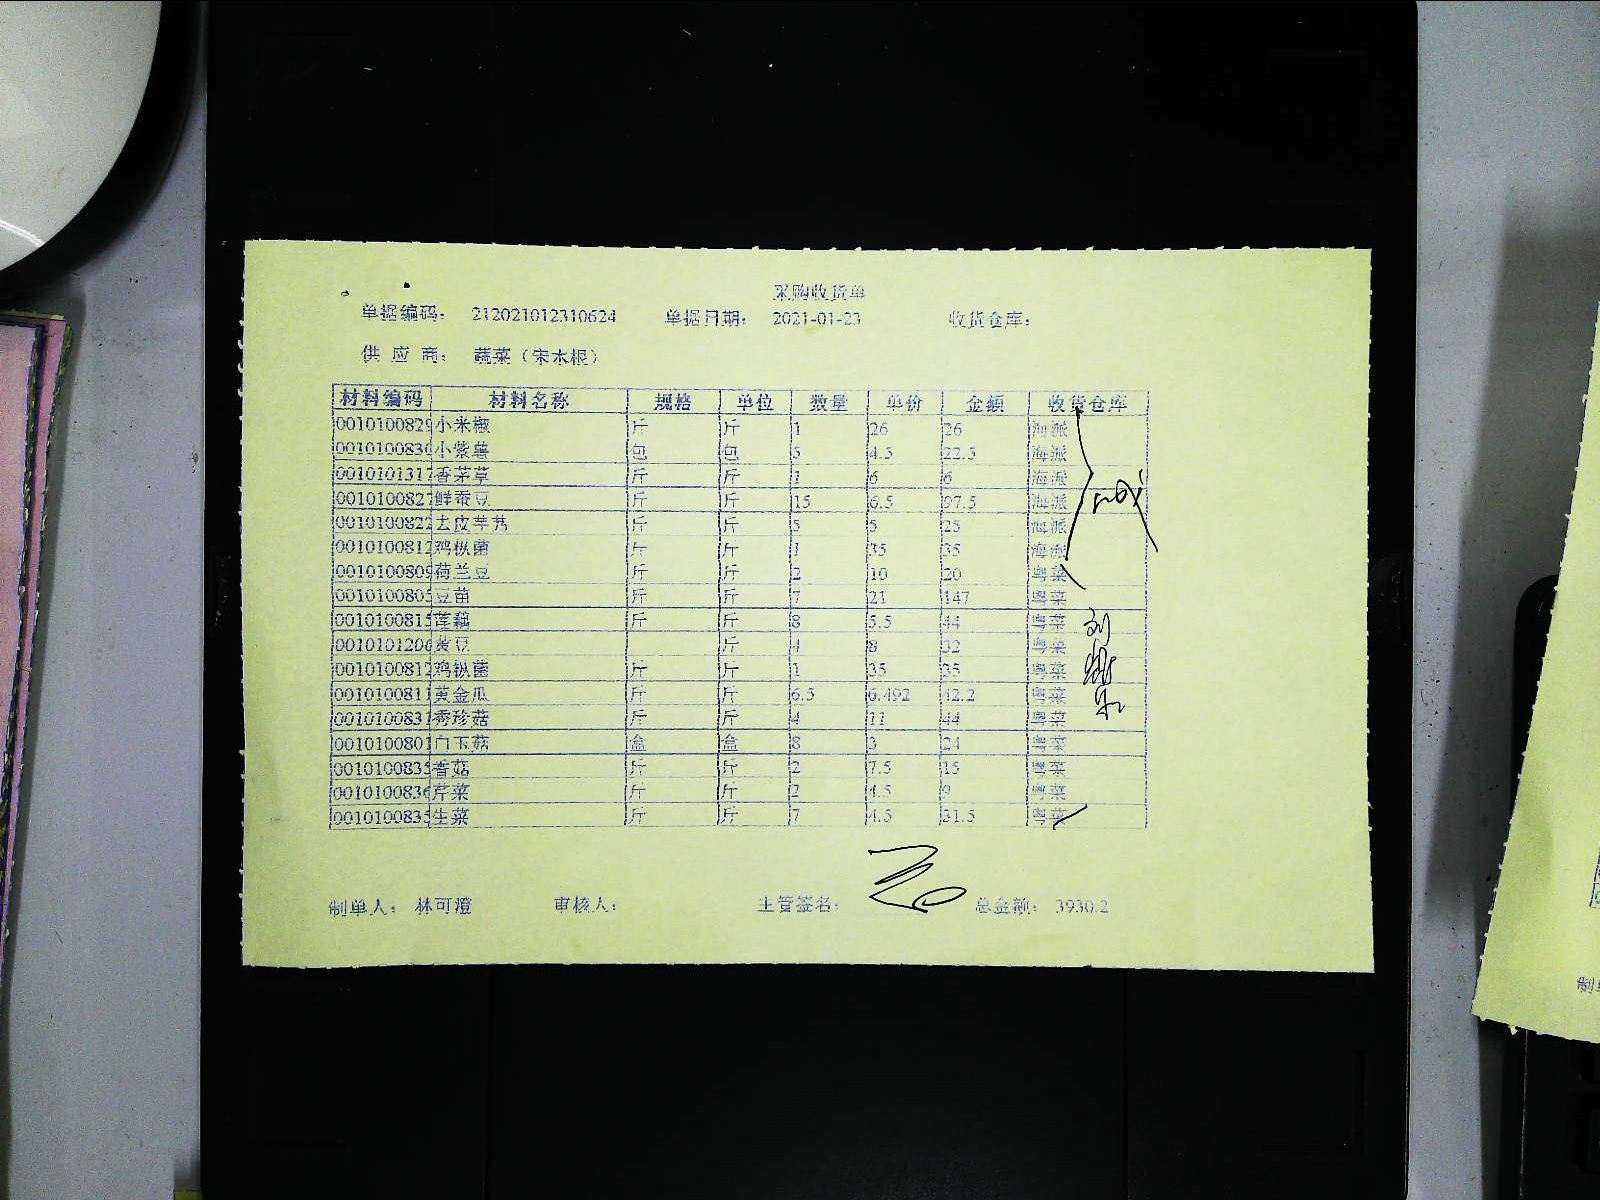 采购收货单
单据编码: 212021012310624 单据日期: 2021-01-23 收货仓库:
供 应 商: 蔬菜（宋木根）
材料编码 材料名称 规格 单位 数量 单价 金额 收货仓库
0010100829 小米椒 斤 斤 1 26 26 海派
0010100830 小紫薯 包 包 5 4.5 22.5 海派
0010101317 香茅草 斤 斤 1 6 6 海派
0010100827 鲜蚕豆 斤 斤 15 6.5 97.5 海派
0010100822 去皮芋艿 斤 斤 5 5 25 海派
0010100812 鸡枞菌 斤 斤 1 35 35 海派
0010100809 荷兰豆 斤 斤 2 10 20 粤菜
0010100805 豆苗 斤 斤 7 21 147 粤菜
0010100815 莲藕 斤 斤 8 5.5 44 粤菜
0010101206 黄豆 斤 4 8 32 粤菜
0010100812 鸡枞菌 斤 斤 1 35 35 粤菜
0010100811 黄金瓜 斤 斤 6.5 6.492 42.2 粤菜
0010100831 秀珍菇 斤 斤 4 11 44 粤菜
0010100801 白玉菇 盒 盒 8 3 24 粤菜
0010100835 香菇 斤 斤 2 7.5 15 粤菜
0010100836 芹菜 斤 斤 2 4.5 9 粤菜
0010100835 生菜 斤 斤 7 4.5 31.5 粤菜
制单人: 林可澄 审核人: 主管签名: 总金额: 3930.2